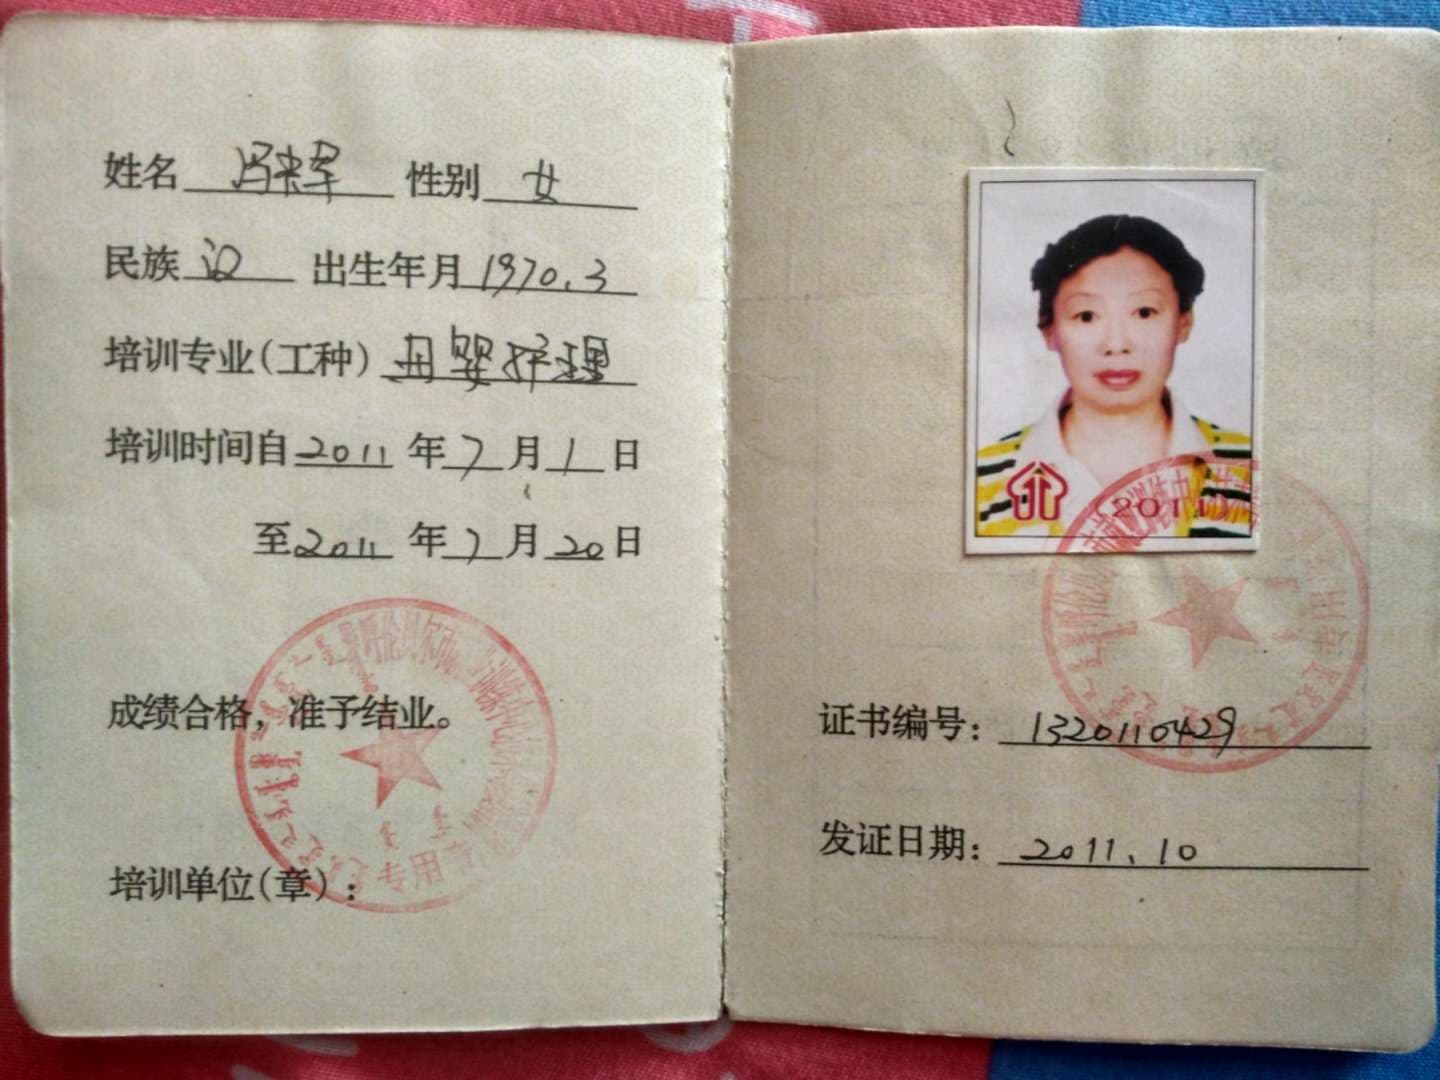 姓名 冯来军 性别 女
民族 汉 出生年月 1970.3
培训专业(工种) 母婴护理
培训时间自 2011 年 7 月 1 日
至 2011 年 7 月 20 日
成绩合格，准予结业。
培训单位(章)：
专用
(2011)
证书编号： 1320110429
发证日期： 2011.10